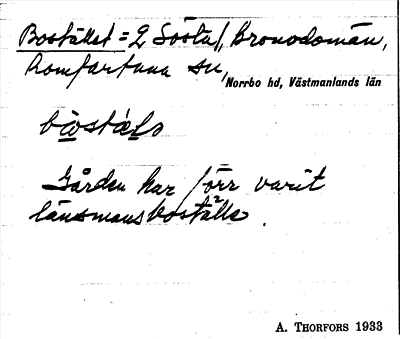 Bostället = 2 Sösta, Kronodomän,
Romfartuna sn,
Norrbo hd, Västmanlands län
bωstäls
Gården har förr varit
länsmansboställe.
A. THORFORS 1933